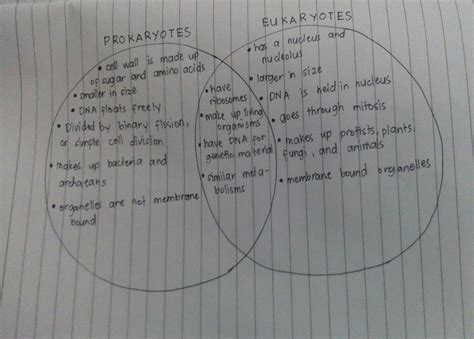 PROKARYOTES
• cell wall is made up
of sugar and amino acids
• smaller in size
• DNA floats freely
• Divided by binary fission,
or simple cell division
• makes up bacteria and
archaeans
• organelles are not membrane
bound
• have
ribosomes
• make up living
organisms
• have DNA for
genetic material
• similar meta-
bolisms
EUKARYOTES
• has a nucleus and
nucleolus
• larger in size
• DNA is held in nucleus
• goes through mitosis
• makes up protists, plants,
fungi, and animals
• membrane bound organelles